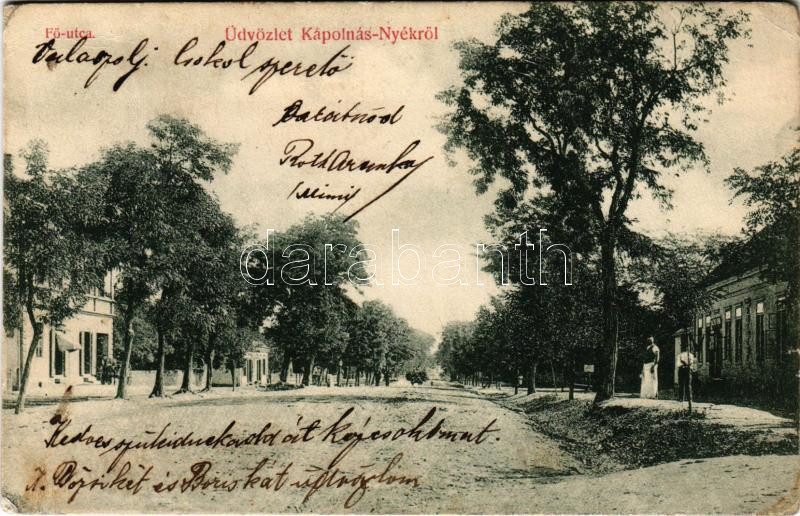 Fő-utca.
Üdvözlet Kápolnás-Nyékről
Válaszolj. Csókol szerető
barátnőd
Roth Aranka
/Mimi/
darabanth
Kedves szüleidnek add át kézcsókomat.
A Bözsikét és Boriskát üdvözlom